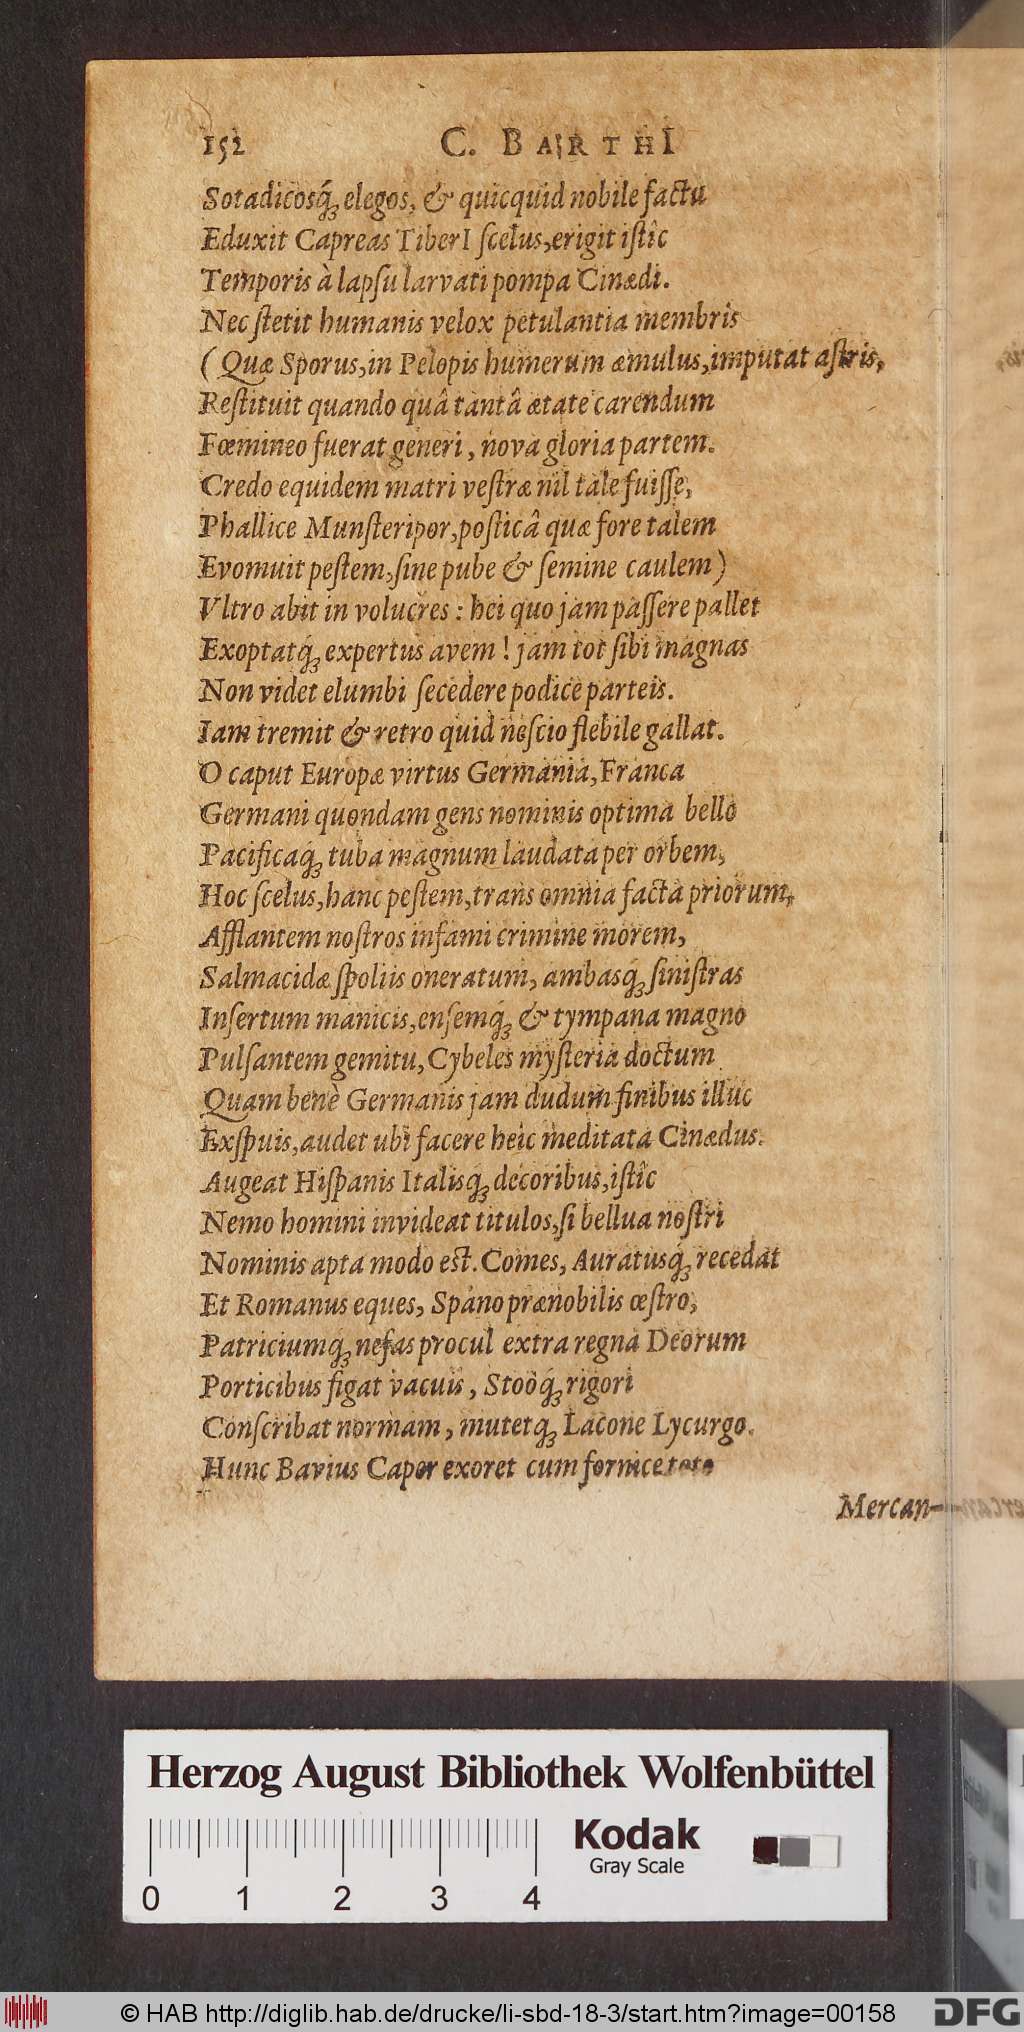 152 C. BARTHI
Sotadicosq́; elegos, & quicquid nobile factu
Eduxit Capreas TiberI ſcelus, erigit iſtîc
Temporis à lapſu larvati pompa Cinædi.
Nec ſtetit humanis velox petulantia membris
(Quæ Sporus, in Pelopis humerum æmulus, imputat aſtris,
Reſtituit quando quâ tantâ ætate carendum
Fœmineo fuerat generi, nova gloria partem.
Credo equidem matri veſtræ nil tale fuiſſe,
Phallice Munſteripor, poſticâ quæ fore talem
Evomuit peſtem, ſine pube & ſemine caulem)
Vltro abit in volucres: hei quo jam paſſere pallet
Exoptatq́; expertus avem! jam tot ſibi magnas
Non videt elumbi ſecedere podice parteis.
Iam tremit & retro quid neſcio flebile gallat.
O caput Europæ virtus Germania, Franca
Germani quondam gens nominis optima bello
Pacificaq́; tuba magnum laudata per orbem,
Hoc ſcelus, hanc peſtem, trans omnia facta priorum,
Afflantem noſtros infami crimine morem,
Salmacidæ ſpoliis oneratum, ambasq́; ſiniſtras
Inſertum manicis, enſemq́; & tympana magno
Pulſantem gemitu, Cybeles myſteria doctum
Quam benè Germanis jam dudum finibus illuc
Exſpuis, audet ubi facere heic meditata Cinædus.
Augeat Hiſpanis Italisq́; decoribus, iſtîc
Nemo homini invideat titulos, ſi bellua noſtri
Nominis apta modo est. Comes, Auratusq́; recedat
Et Romanus eques, Spano prænobilis œſtro,
Patriciumq́; nefas procul extra regna Deorum
Porticibus figat vacuis, Stoôq́; rigori
Conſcribat normam, mutetq́; Lacone Lycurgo.
Hunc Bavius Capor exoret cum fornice toto
Mercan-
Herzog August Bibliothek Wolfenbüttel
Kodak
Gray Scale
0 1 2 3 4
© HAB http://diglib.hab.de/drucke/li-sbd-18-3/start.htm?image=00158
DFG